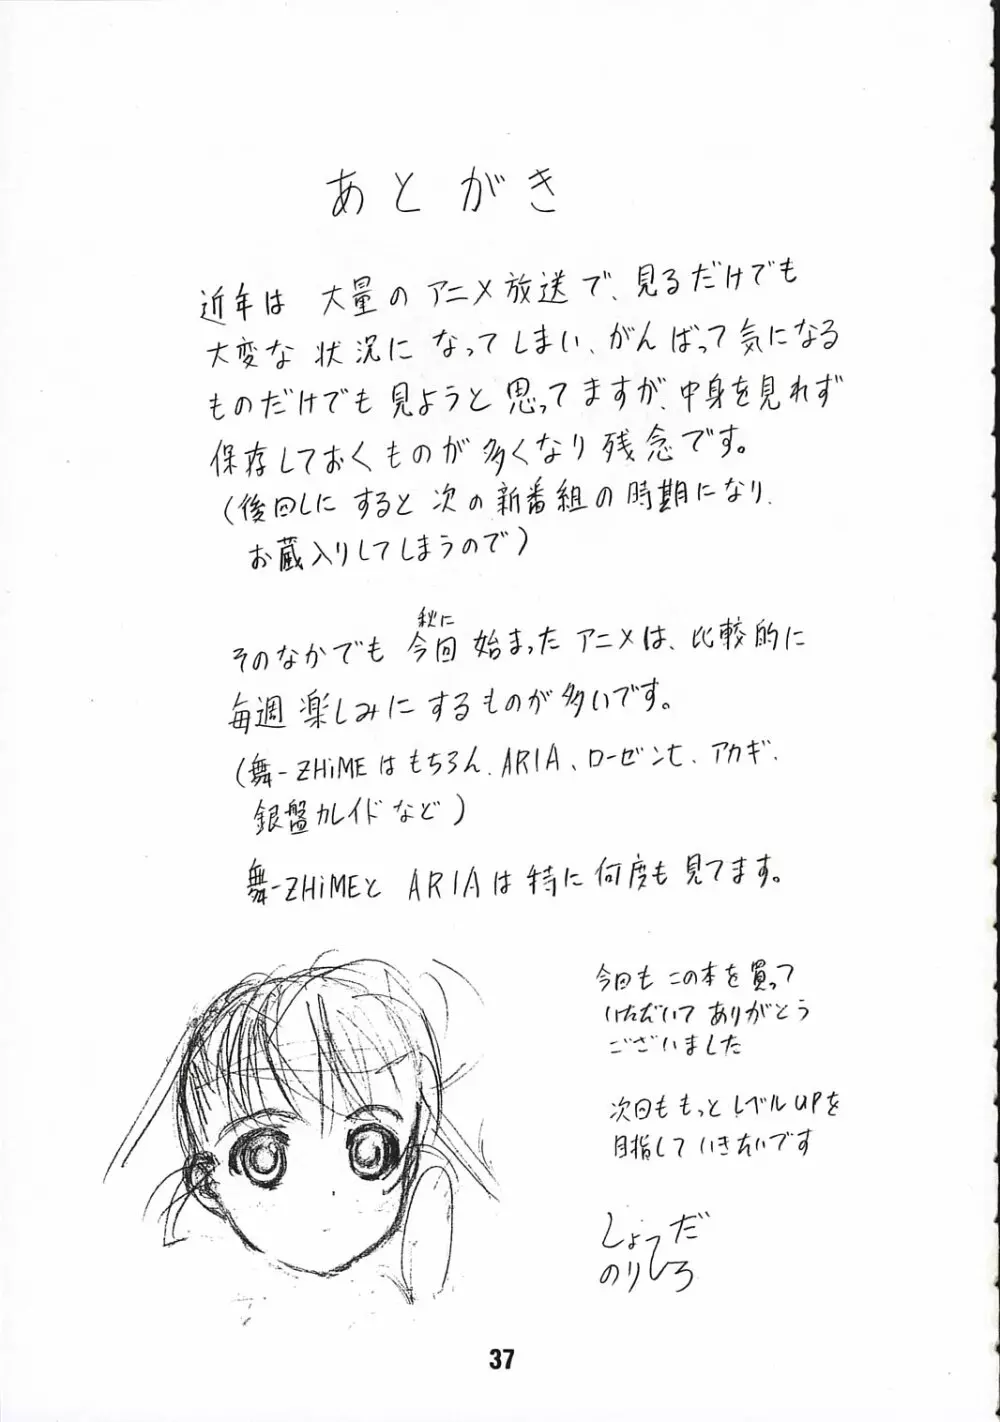 あとがき
近年は 大量のアニメ放送で、見るだけでも
大変な 状況に なってしまい、がんばって気になる
ものだけでも 見ようと 思ってますが、中身を見れず
保存しておくものが多くなり 残念です。
(後回しに すると 次の新番組の時期になり、
お蔵入りしてしまうので)
秋に
そのなかでも 今回 始まった アニメは、比較的に
毎週 楽しみにするものが多いです。
(舞-ZHiMEはもちろん、ARIA、ローゼンも、アカギ、
銀盤カレイドなど)
舞-ZHiMEと ARIAは特に何度も見てます。
今回も この本を買って
いただいて ありがとう
ございました
次回も もっと レベルUPを
目指して いきたいです
しょうだ
のりひろ
37